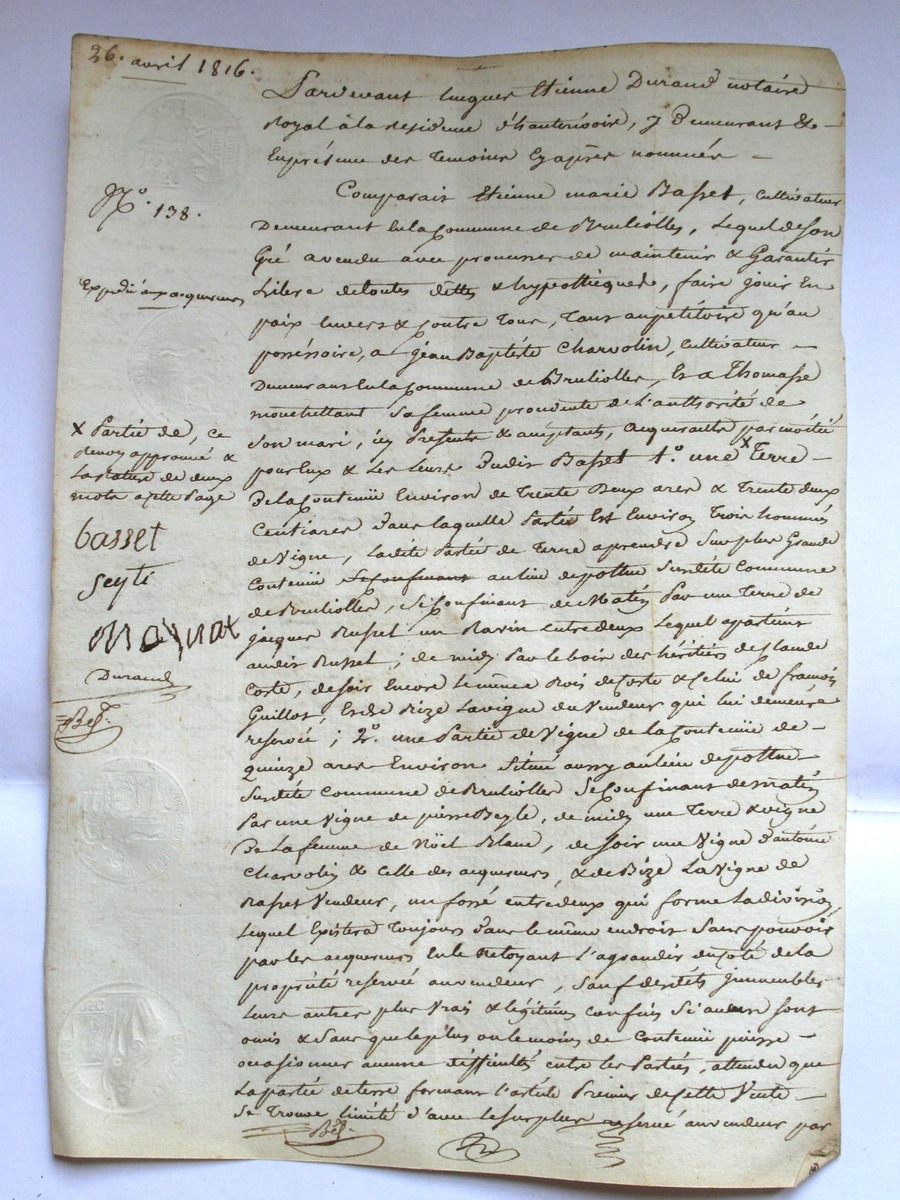 26. avril 1816.
Pardevant Jacques Etienne Durand notaire
Royal à la residence d'hauterivoire, y Demeurant &
En présence des Temoins Cy après nommés —
N.o 138.
Comparait Etienne marie Basset, Cultivateur
Demeurant En la Commune de Brullioles, Lequel de Son
Gré a vendu avec promesse de maintenir & Garantir
Expedié aux acquereurs
Libre de toutes dettes & hypothèques, faire jouir En
paix Envers & Contre Tous, Tant au petitoire qu'au
posséssoire, a jean Baptiste Charvolin, Cultivateur —
Demeurant En la Commune de Brullioles, Et a Thomasse
mouchettant Sa femme procedente de L'authorité de
Son mari, icy Presents & acceptants, acquerants par moitié
X Partie de, Ce
renvoy approuvé &
La rature de deux
mots a cette Page
pour Eux & Les Leurs dudit Basset 1.o une X Terre —
De la Contenüe Environ de Trente Deux ares & Trente deux
Centiares dans laquelle Partie Est Environ Trois hommées
basset
de Vigne, La dite Partie de Terre a prendre Sur plus Grande
Seyti
Contenüe Se Confinant au lieu de pottue Susdite Commune
de Brullioles, Se Confinant de Matin Par une Terre de
Maynat
jacques Russet un Ravin entre deux Lequel apartient
Durand
audit Russet; de midy Par le bois des héritiers de Claude
Coste, de soir Encore Le même Bois de Coste & Celui de françois
Bes.
Guillot, Et de Bize La vigne du Vendeur qui lui demeure
reservée; 2.o une Partie de Vigne de la Contenüe de —
quinze ares Environ Située aussy au lieu de pottue —
Susdite Commune de Brullioles Se Confinant de matin
Par une Vigne de pierre Beyle, de midy une Terre & vigne
De La femme de Noël Blanc, de Soir une Vigne d'antoine
Charvolin & Celle des acquereurs, & de Bize La Vigne de
Basset Vendeur, un fossé entre deux qui forme La division,
Lequel Existera Toujours dans le même endroit Sans pouvoir
par les acquereurs En le Netoyant L'agrandir du Coté de la
propriété reservée au vendeur, Sauf desdits Immeubles
Leurs autres plus Vrais & légitimes Confins Si aucun sont
omis & Sans que le plus ou le moins de Contenüe puisse —
ocasionner aucune difficultés entre les Parties, attendu que
La partie de terre formant l'article Premier de Cette Vente —
Se Trouve limité d'avec le surplus reservé au vendeur par
Bes.